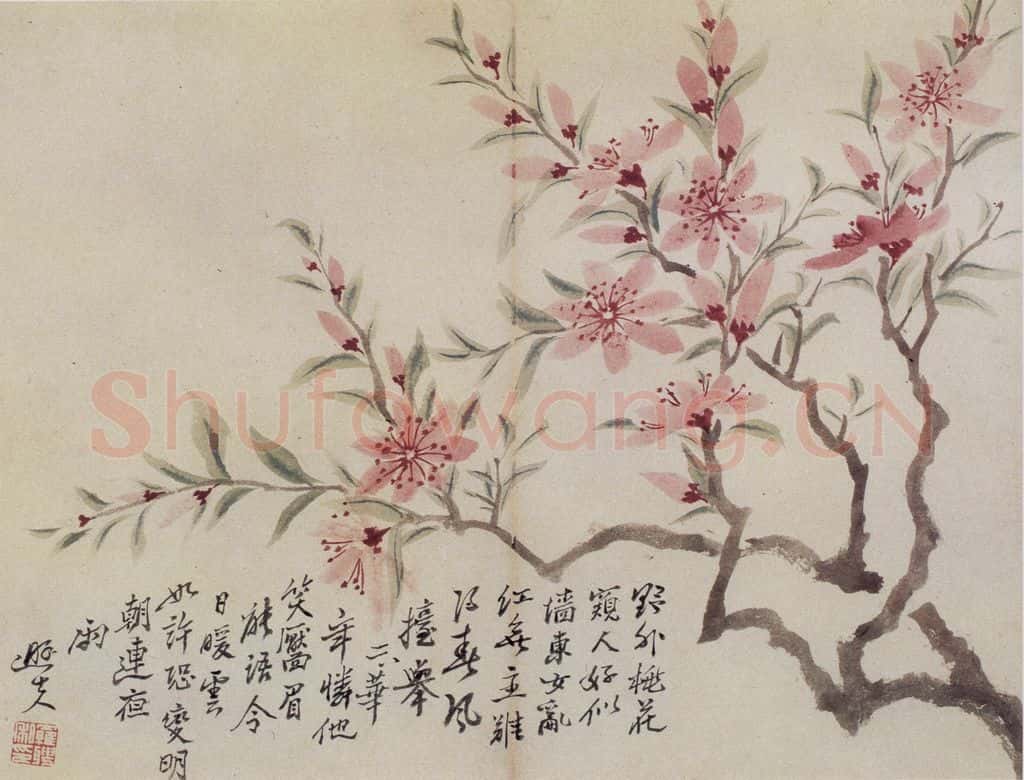 野外桃花
窺人好似
墻東女亂
紅無主難
得春風
擡舉
二八華
年憐他
笑靨眉
能語今
日暖雲
如許恐變明
朝連夜
雨
遯夫
Shufawang.CN